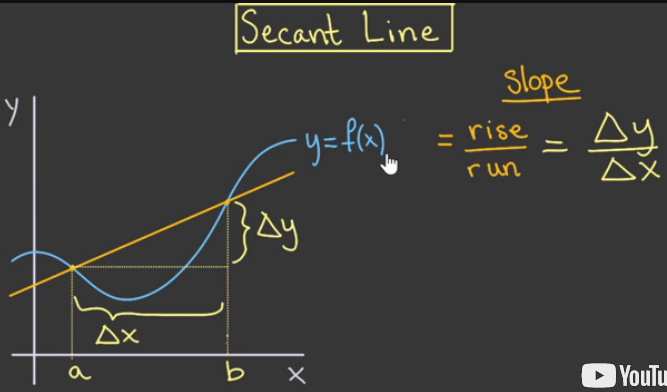 Secant Line
Slope
y
y=f(x)
= rise/run = Δy/Δx
Δy
Δx
a
b
x
YouTu